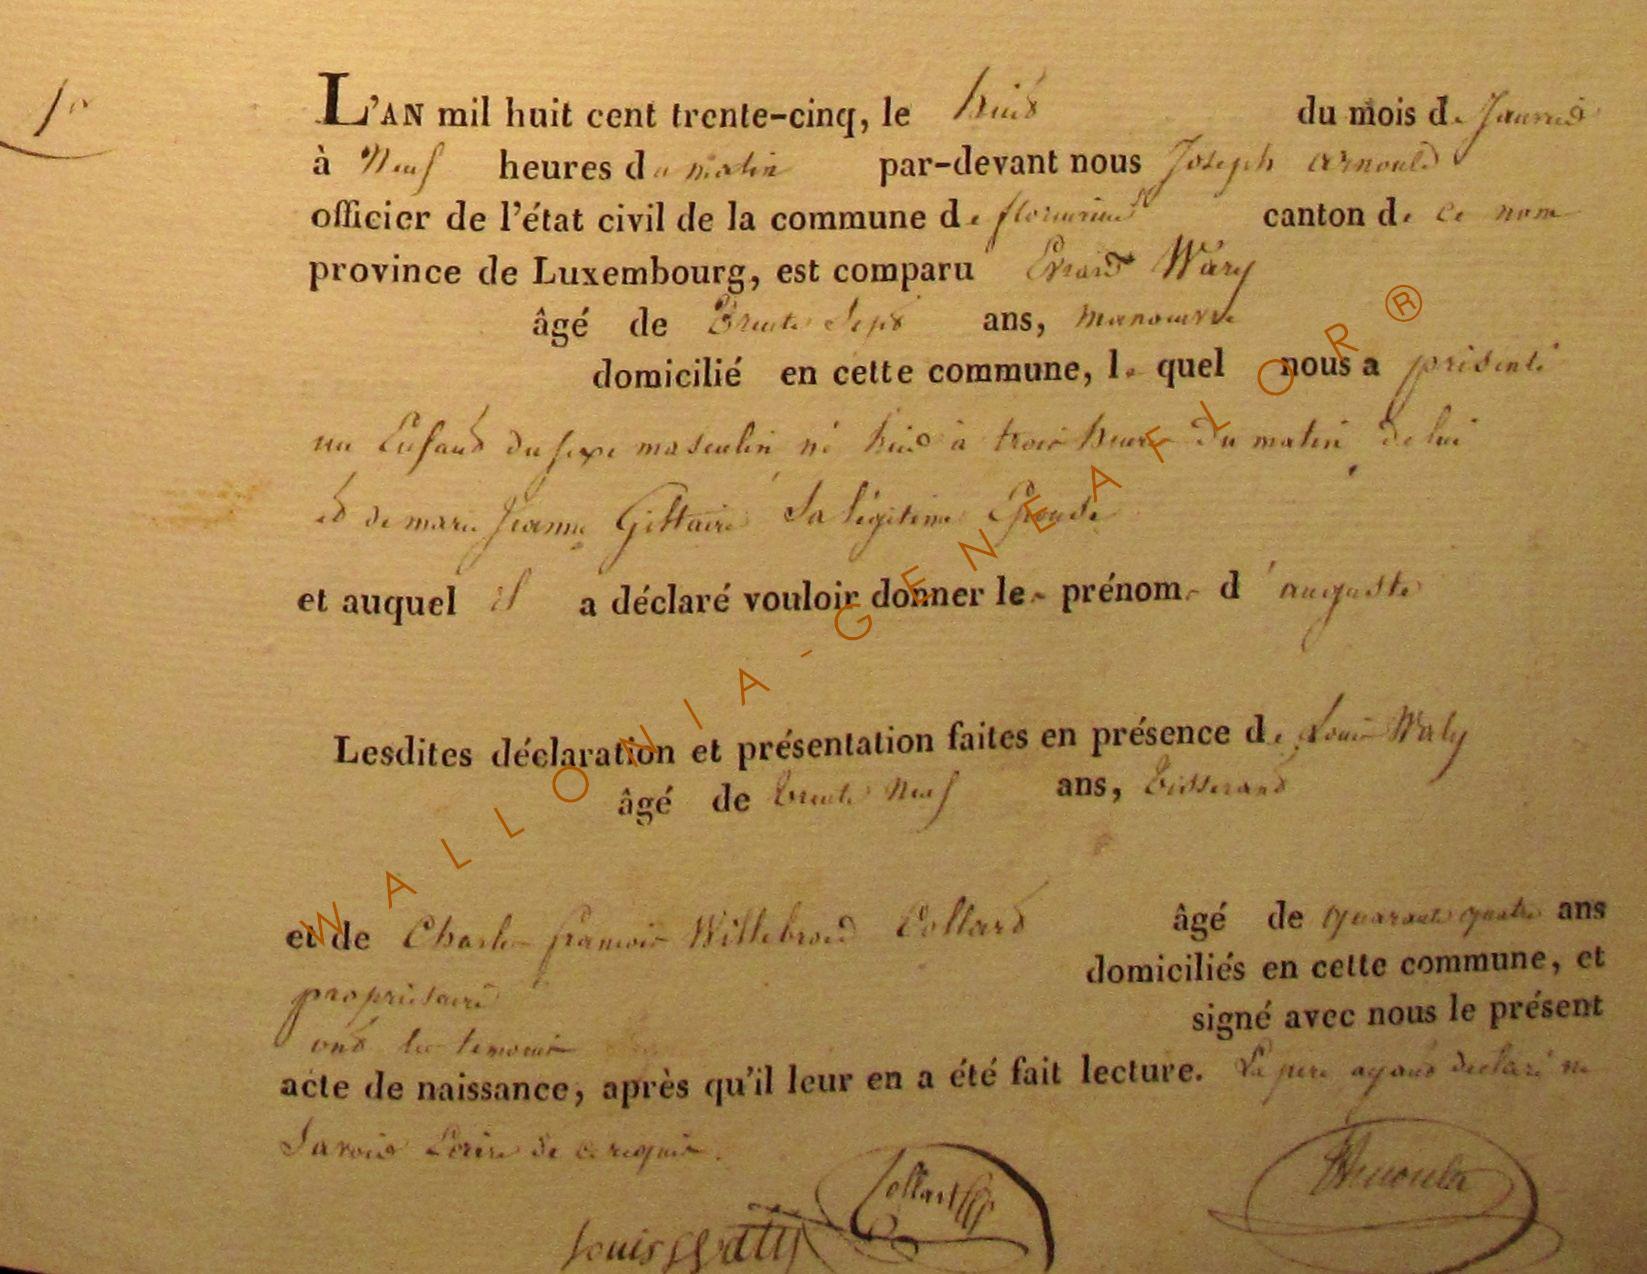 1er
L'AN mil huit cent trente-cinq, le huit du mois de Janvier
à Neuf heures du matin par-devant nous Joseph arnould
officier de l'état civil de la commune de florenville canton de ce nom
province de Luxembourg, est comparu Erard Wary
âgé de Trente Sept ans, manoeuvre
domicilié en cette commune, le quel nous a présenté
un Enfant du sexe masculin né huit à trois heures du matin de lui
et de marie Jeanne Gillaire Sa légitime Epouse
et auquel il a déclaré vouloir donner le prénom d'auguste
Lesdites déclaration et présentation faites en présence de Louis Waty
âgé de trente Neuf ans, Tisserand
et de Charles françois Willebrord Collard âgé de quarante quatre ans
propriétaire domiciliés en cette commune, et
ont les temoins signé avec nous le présent
acte de naissance, après qu'il leur en a été fait lecture. Le pere ayant declaré ne
Savoir Ecrire de ce requis.
Louis Watly Collard Arnould
WALLONIA-GENEAFLOR®